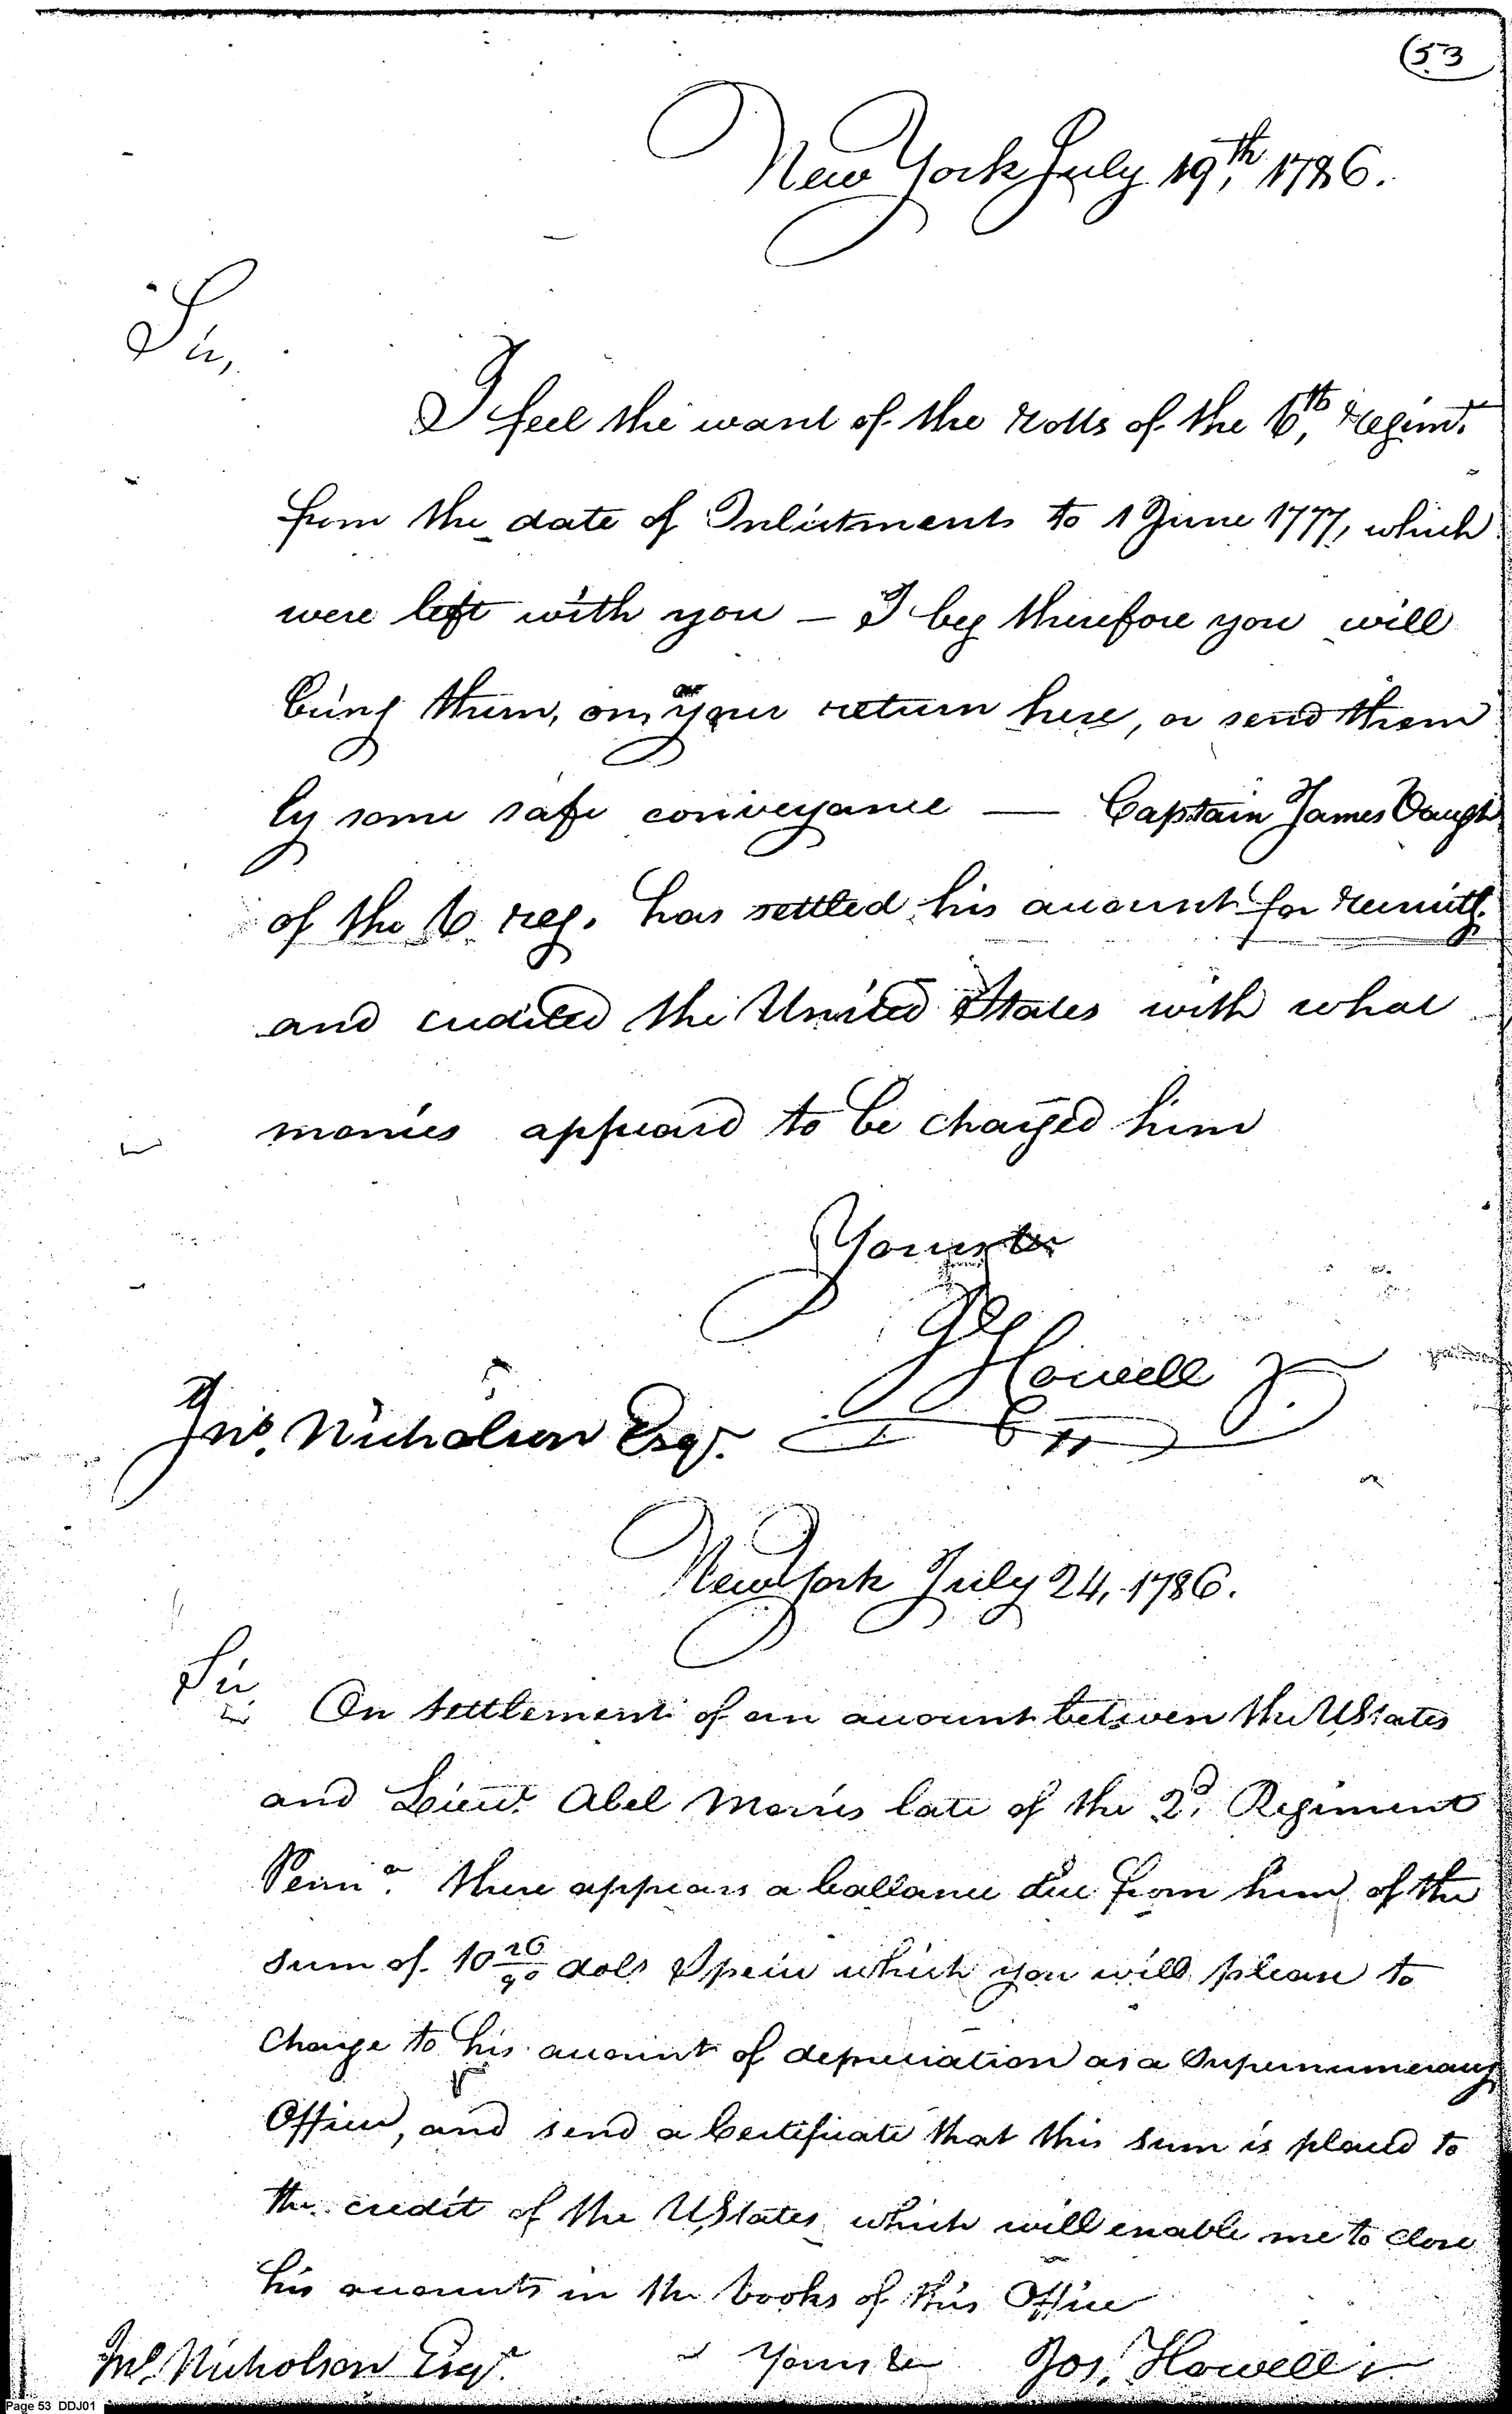 53
New York July 19th, 1786.
Sir,
I feel the want of the rolls of the 6th, Regimt.
from the date of Inlistments to 1 June 1777, which
were left with you – I beg therefore you will
bring them, on your return here, or send them
by some safe conveyance — Captain James
of the 6 reg. has settled his account for recruitg.
and credited the United States with what
monies appeard to be charged him
Yours &c
Js Howell Jr.
Jno. Nicholson Esqr.
New York July 24, 1786.
Sir
On settlement of an account between the UStates
and Lieut. Abel Morris late of the 2d. Regiment
Penna. there appears a ballance due from him of the
sum of 10 26/90 dols Specie which you will please to
Charge to his account of depreciation as a Supernumerary
Officer, and send a Certificate that this sum is placed to
the credit of the UStates which will enable me to close
his accounts in the books of this Office
Jno. Nicholson Esqr. Yours &c Jos. Howell Jr
Page 53 DDJ01